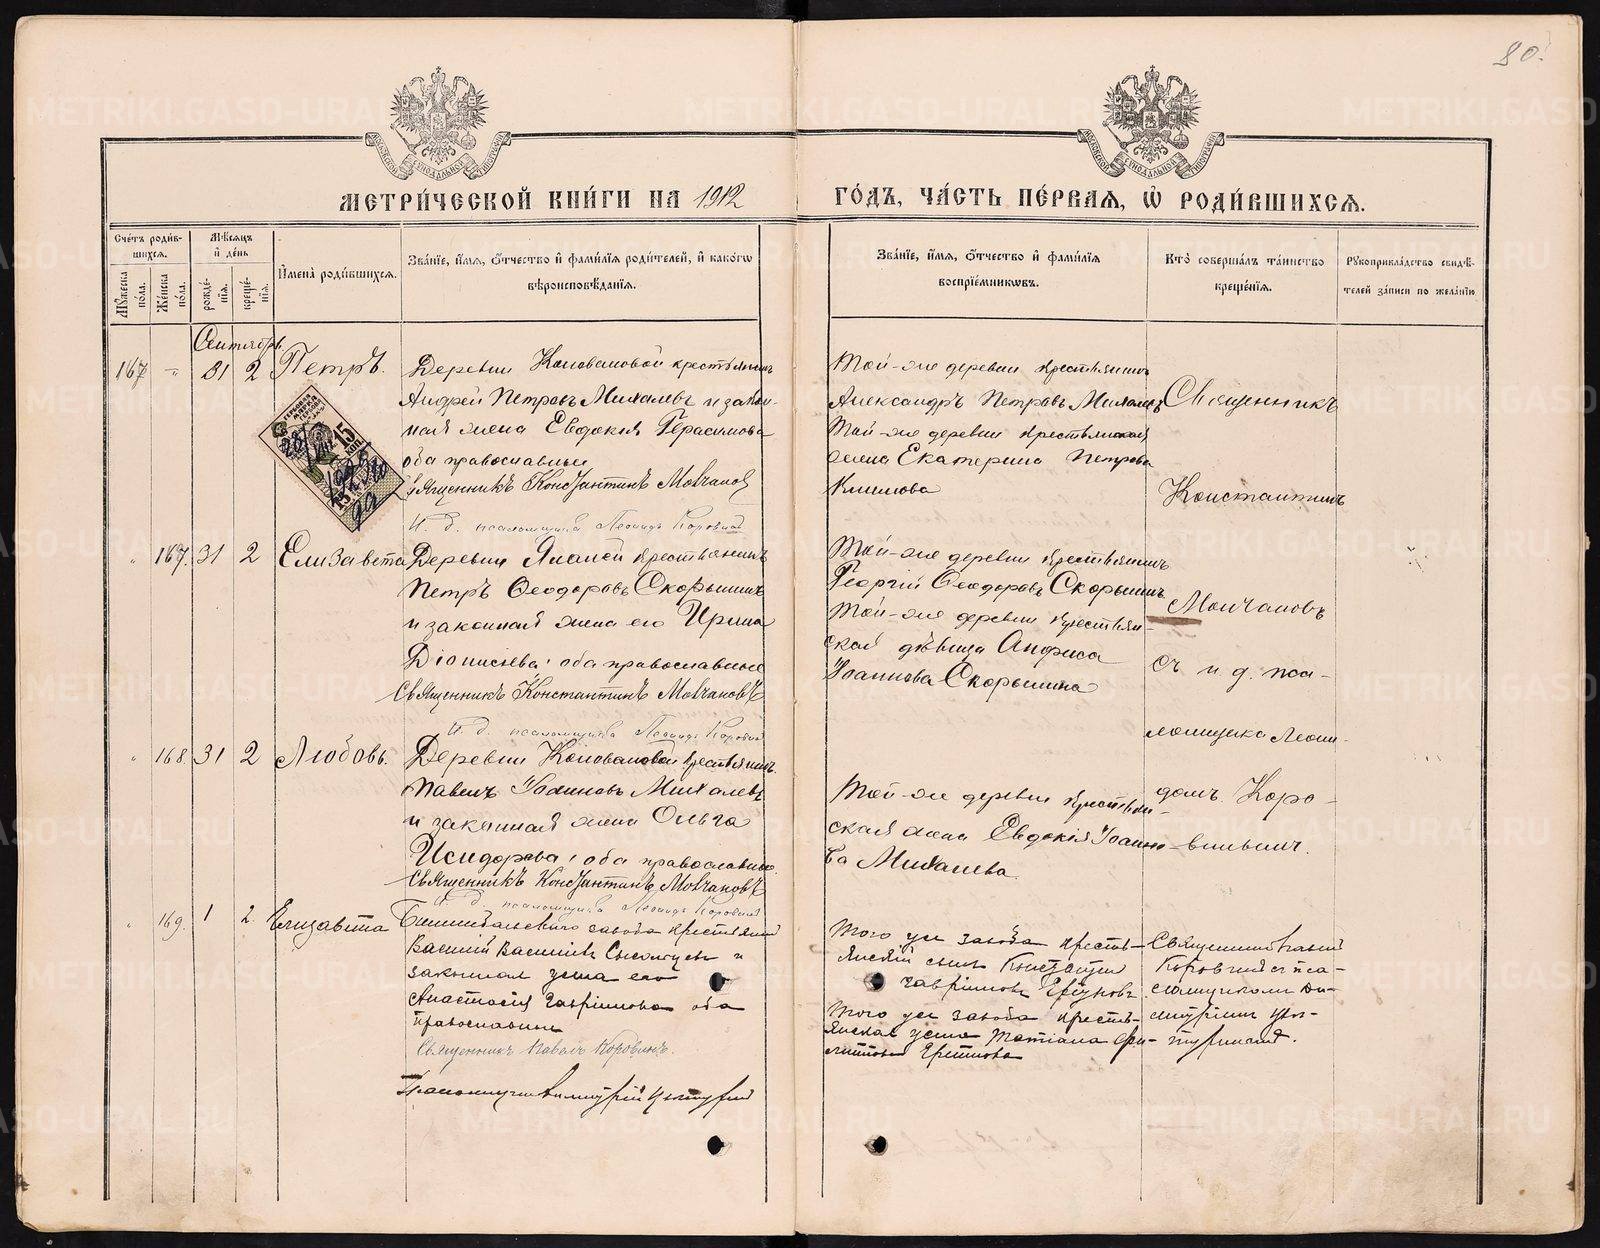 80.
МЕТРИ́ЧЕСКОЙ КНИ́ГИ НА 1912 ГО́ДЪ, ЧА́СТЬ ПЕ́РВАЯ, Ѡ҆ РОДИ́ВШИХСЯ.
Сче́тъ роди́в-
шихся.
Мꙋ́жеска по́ла.
Же́нска по́ла.
Мѣ́сяцъ и҆ де́нь
рожде́-нїя.
креще́-нїя.
И҆мена̀ роди́вшихся.
Зва́нїе, и҆́мя, ѻ҆́тчество и҆ фами́лїя роди́телей, и҆ како́гѡ
вѣроисповѣ́данїя.
Зва́нїе, и҆́мя, ѻ҆́тчество и҆ фами́лїя
воспрїе́мникѡвъ.
Кто̀ соверша́лъ та́инство
креще́нїя.
Рꙋкоприкла́дство свидѣ́-
телей за́писи по жела́нїю.
Сентябрь.
167 – 31 2 Петръ.
Деревни Коноваловой крестьянинъ
Андрей Петровъ Михалевъ и закон-
ная жена Евдокія Герасимова
оба православные
Священникъ Константинъ Молчановъ
И. д. псаломщика Леонидъ Коровинъ
Той-же деревни крестьянинъ
Александръ Петровъ Михалевъ
Той-же деревни крестьянская
жена Екатерина Петрова
Климова
Священникъ
Константинъ
Молчановъ
съ и. д. пса-
ломщика Леони-
домъ Коро-
винымъ.
" 167. 31 2 Елизавета
Деревни крестьянинъ
Петръ Ѳеодоровъ Скорынинъ
и законная жена его Ирина
Діонисіева, оба православные
Священникъ Константинъ Молчановъ
И. д. псаломщика Леонидъ Коровинъ
Той-же деревни крестьянинъ
Георгій Ѳеодоровъ Скорынинъ
Той-же деревни крестьян-
ская дѣвица Анфиса
Іоаннова Скорынина
" 168. 31 2 Любовь.
Деревни Коноваловой крестьянинъ
Павелъ Іоанновъ Михалевъ
и законная жена Ольга
Исидорова, оба православные.
Священникъ Константинъ Молчановъ
И. д. псаломщика Леонидъ Коровинъ
Той-же деревни крестьян-
ская жена Евдокія Іоанно-
ва Михалева.
" 169. 1 2. Елизавета
завода крестьянинъ
Василій Васильевъ и
законная жена его
Анастасія Гавріилова оба
православные
Священникъ Павелъ Коровинъ.
Того же завода кресть-
янскій сынъ Константинъ
Гавріиловъ
Того же завода кресть-
янская жена Татіана
Священникъ Павелъ
Коровинъ съ пса-
ломщикомъ Ди-
митріемъ
15 КОП.
METRIKI.GASO-URAL.RU